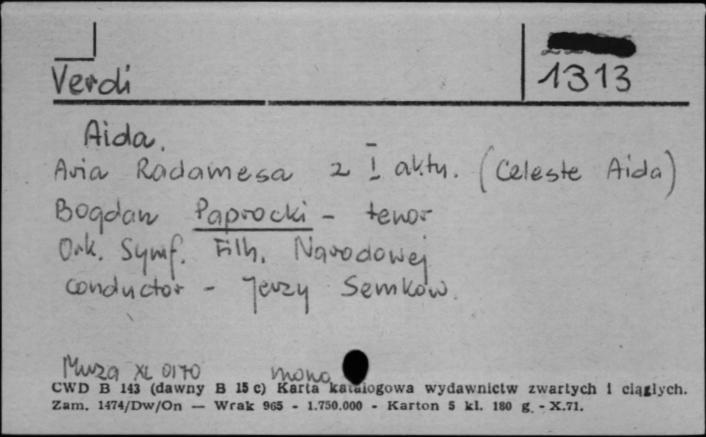 Verdi
1313
Aida.
Aria Radamesa z I aktu. (Celeste Aida)
Bogdan Paprocki - tenor
Ork. Symf. Filh. Narodowej
conductor - Jerzy Semkow.
Muza XL 0170 mono
CWD B 143 (dawny B 15 c) Karta katalogowa wydawnictw zwartych i ciągłych.
Zam. 1474/Dw/On — Wrak 965 - 1.750.000 - Karton 5 kl. 180 g. - X.71.